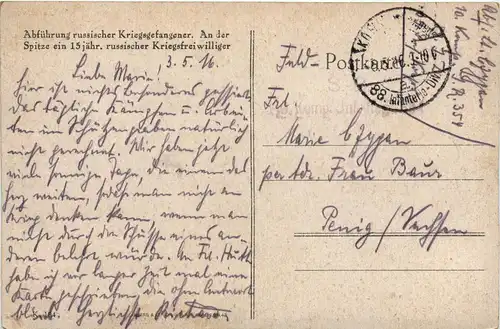 Abführung russischer Kriegsgefangener. An der
Spitze ein 15jähr. russischer Kriegsfreiwilliger
3.5.16
Liebe Marie!
Hier ist nichts Besonderes passiert
das tägliche Kämpfen u. Arbei-
ten im Schützengraben natürlich
nicht gerechnet. Wir haben jetzt
viele sonnige Tage, die einem das
Herz weiten, sodaß man nicht an
Krieg denken kann, wenn man
nicht durch die Schüsse eines an-
deren belehrt würde. An Frl.
habe ich vor langer Zeit mal eine
Karte geschrieben die ohne Antwort
blieb. Herzliche
Feld-
Postkarte
88. Infanterie-Div.
Frl.
Marie
per adr. Frau Baur
Penig / Sachsen
10. Komp. R. 354